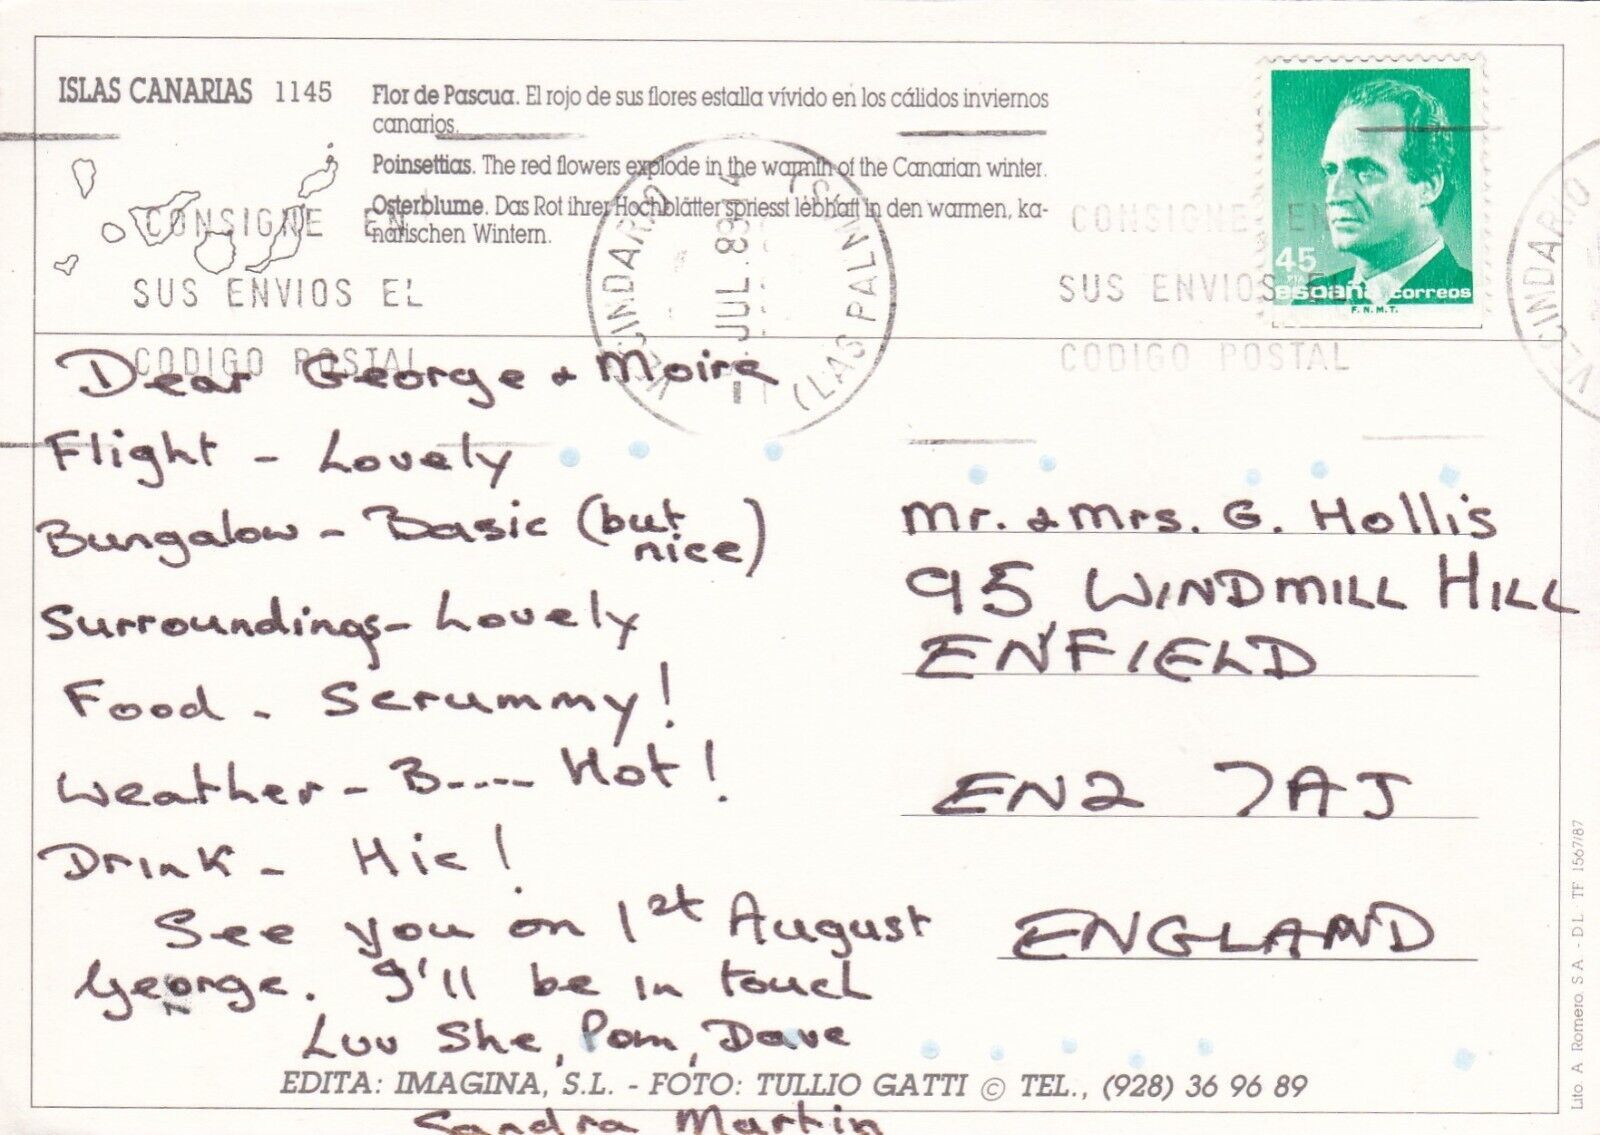 ISLAS CANARIAS 1145
Flor de Pascua. El rojo de sus flores estalla vívido en los cálidos inviernos
canarios.
Poinsettias. The red flowers explode in the warmth of the Canarian winter.
Osterblume. Das Rot ihrer Hochblätter spriesst lebhaft in den warmen, ka-
narischen Wintern.
CONSIGNE EN
SUS ENVIOS EL
CODIGO POSTAL
VECINDARIO
JUL. 89
(LAS PALMAS)
CONSIGNE EN
SUS ENVIOS EL
CODIGO POSTAL
VECINDARIO
45
PTA
españa correos
F.N.M.T.
Dear George & Moira
Flight - Lovely
Bungalow - Basic (but
nice)
Surroundings - Lovely
Food - Scrummy!
Weather - B---- Hot!
Drink - Hic!
See you on 1st August
George. I'll be in touch
Luv She, Pom, Dave
Sandra Martin
Mr. & Mrs. G. Hollis
95 WINDMILL HILL
ENFIELD
EN2 7AJ
ENGLAND
EDITA: IMAGINA, S.L. - FOTO: TULLIO GATTI © TEL., (928) 36 96 89
Lito. A. Romero. S A. - D L. TF 1567/87